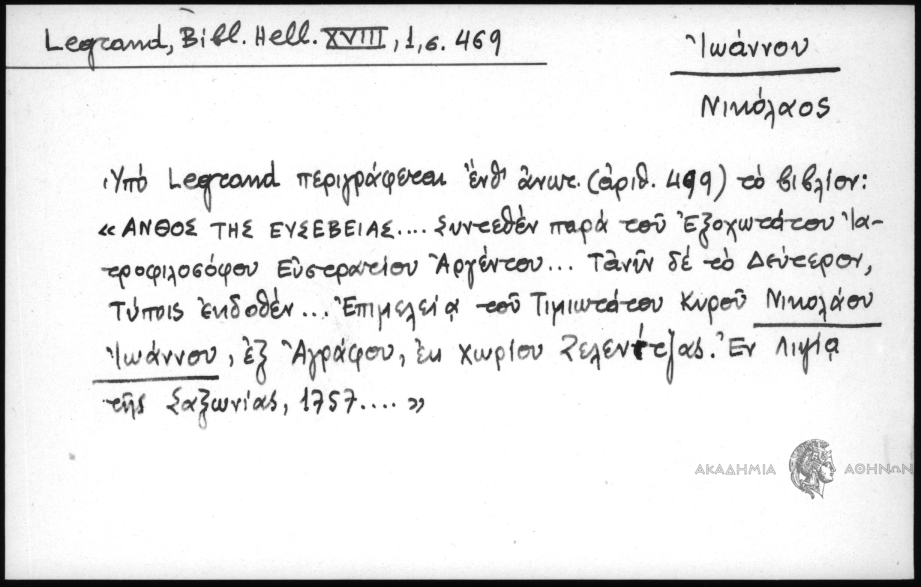 Legrand, Bibl. Hell. XVIII, 1, σ. 469
Ἰωάννου
Νικόλαος
Ὑπό Legrand περιγράφεται ἔνθ' ἀνωτ. (ἀριθ. 499) τό βιβλίον:
« ΑΝΘΟΣ ΤΗΣ ΕΥΣΕΒΕΙΑΣ.... Συντεθέν παρά τοῦ Ἐξοχωτάτου Ἰα-
τροφιλοσόφου Εὐστρατίου Ἀργέντου... Τανῦν δέ τό Δεύτερον,
Τύποις ἐκδοθέν... Ἐπιμελείᾳ τοῦ Τιμιωτάτου Κυροῦ Νικολάου
Ἰωάννου, ἐξ Ἀγράφου, ἐκ χωρίου Ζελενίτζας. Ἐν Λιψίᾳ
τῆς Σαξωνίας, 1757.... »
ΑΚΑΔΗΜΙΑ ΑΘΗΝΩΝ